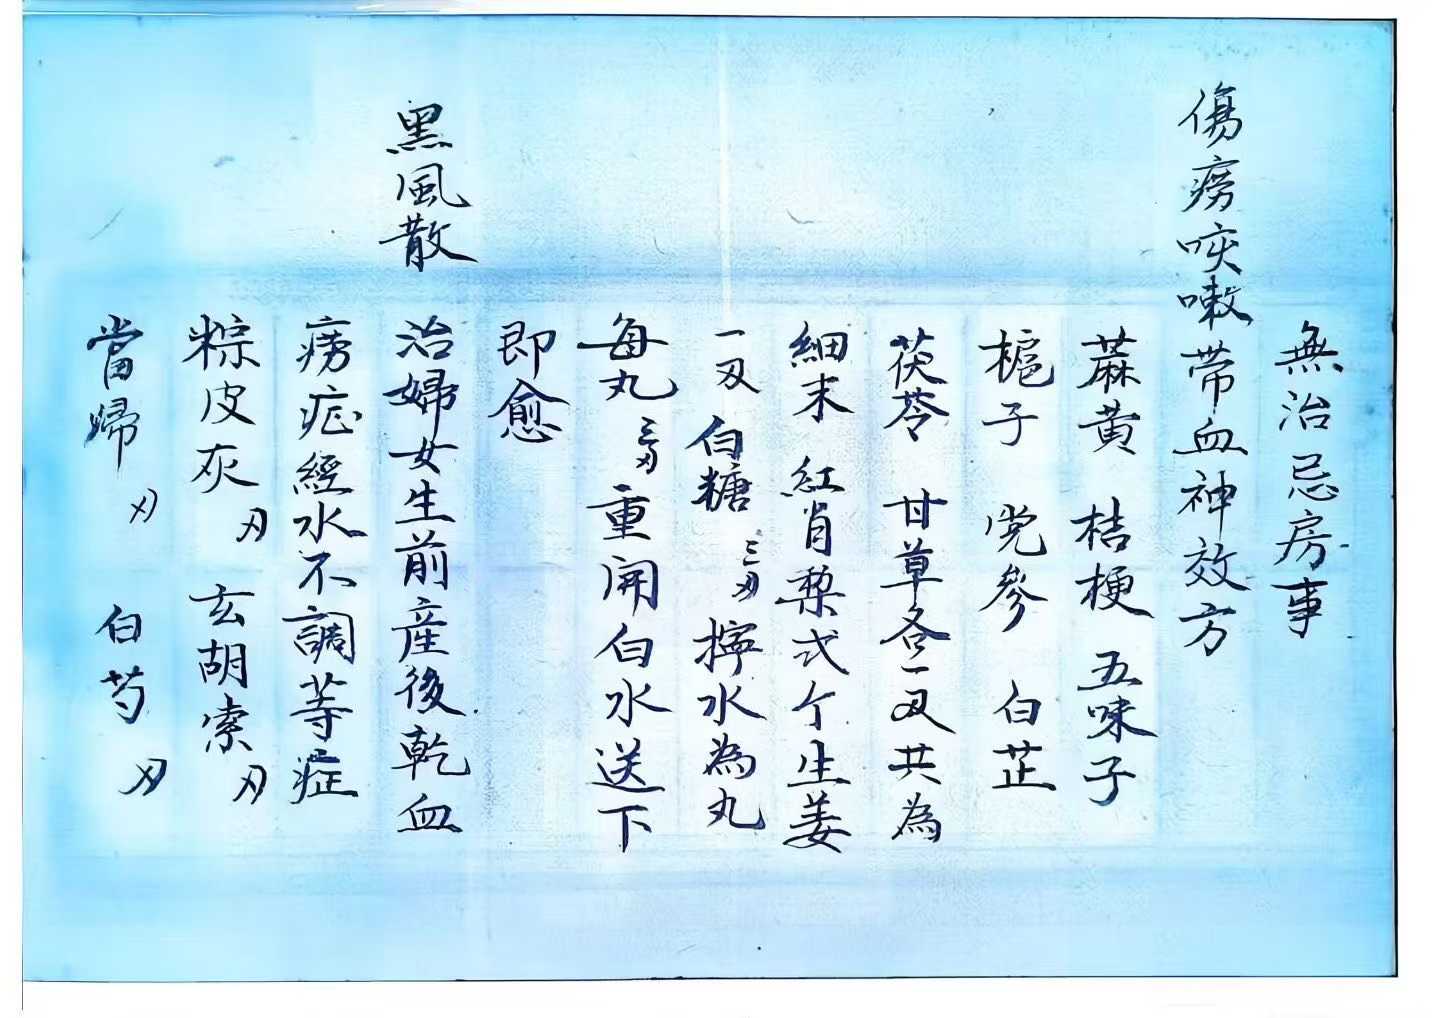 無治忌房事
傷痨咳嗽带血神效方
蔴黄 桔梗 五味子
梔子 党參 白芷
茯苓 甘草各一刄共為
細末 紅肖梨弍个生姜
一刄 白糖 三刄 擰水為丸
每丸 三刄 重開白水送下
即愈
黑風散
治婦女生前産後乾血
痨症經水不調等症
粽皮灰 刄 玄胡索 刄
當歸 刄 白芍 刄